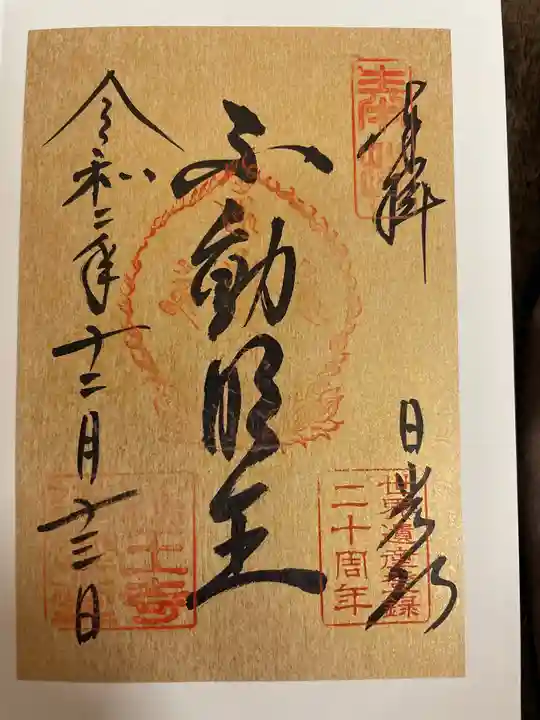 奉拝
日光山
世界遺産登録
二十周年
不動明王
令和二年十二月十三日